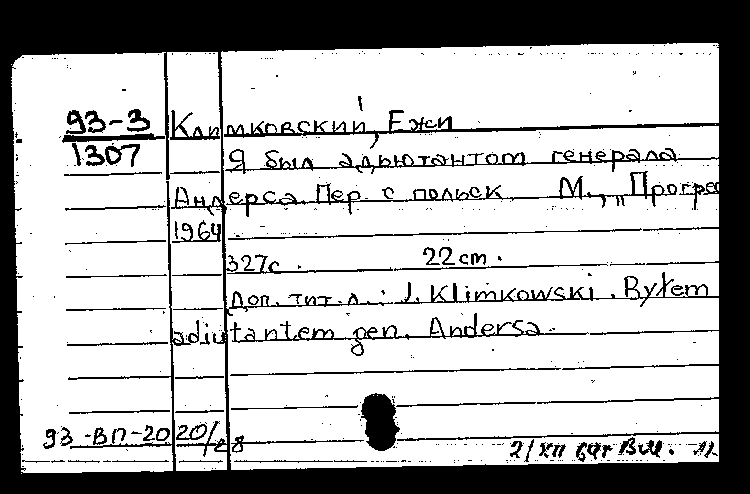 93-3 Климковский, Ежи
1307 Я был адъютантом генерала
Андерса. Пер. с польск. М., „Прогре
1964.
327с. 22 cm.
Доп. тит. л.: J. Klimkowski. Byłem
adiutantem gen. Andersa.
93-ВП-2020/28
2/XII 64г